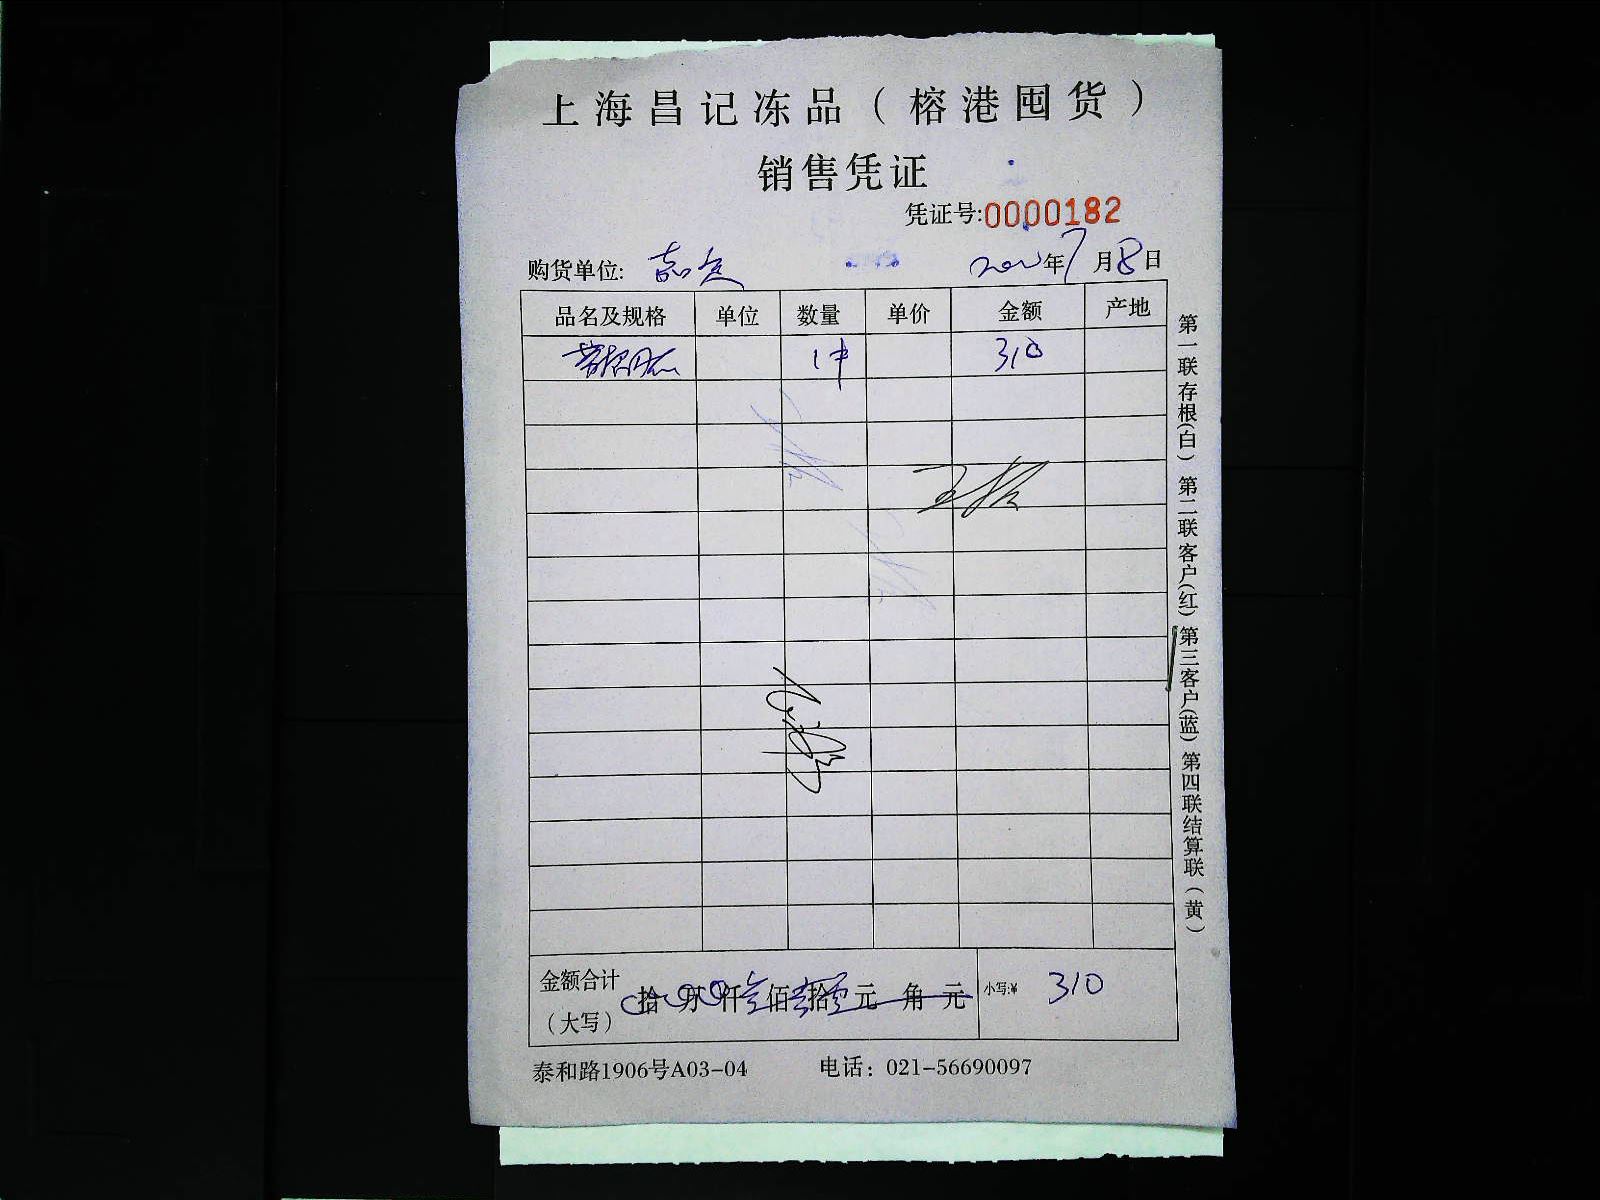 上海昌记冻品（榕港囤货）
销售凭证
凭证号:0000182
购货单位: 年7月8日
品名及规格 单位 数量 单价 金额 产地
1件 310
金额合计（大写） 拾 万 仟 叁佰 壹拾 零元 角 元 小写:¥ 310
泰和路1906号A03-04 电话：021-56690097
第一联存根(白) 第二联客户(红) 第三客户(蓝) 第四联结算联（黄）